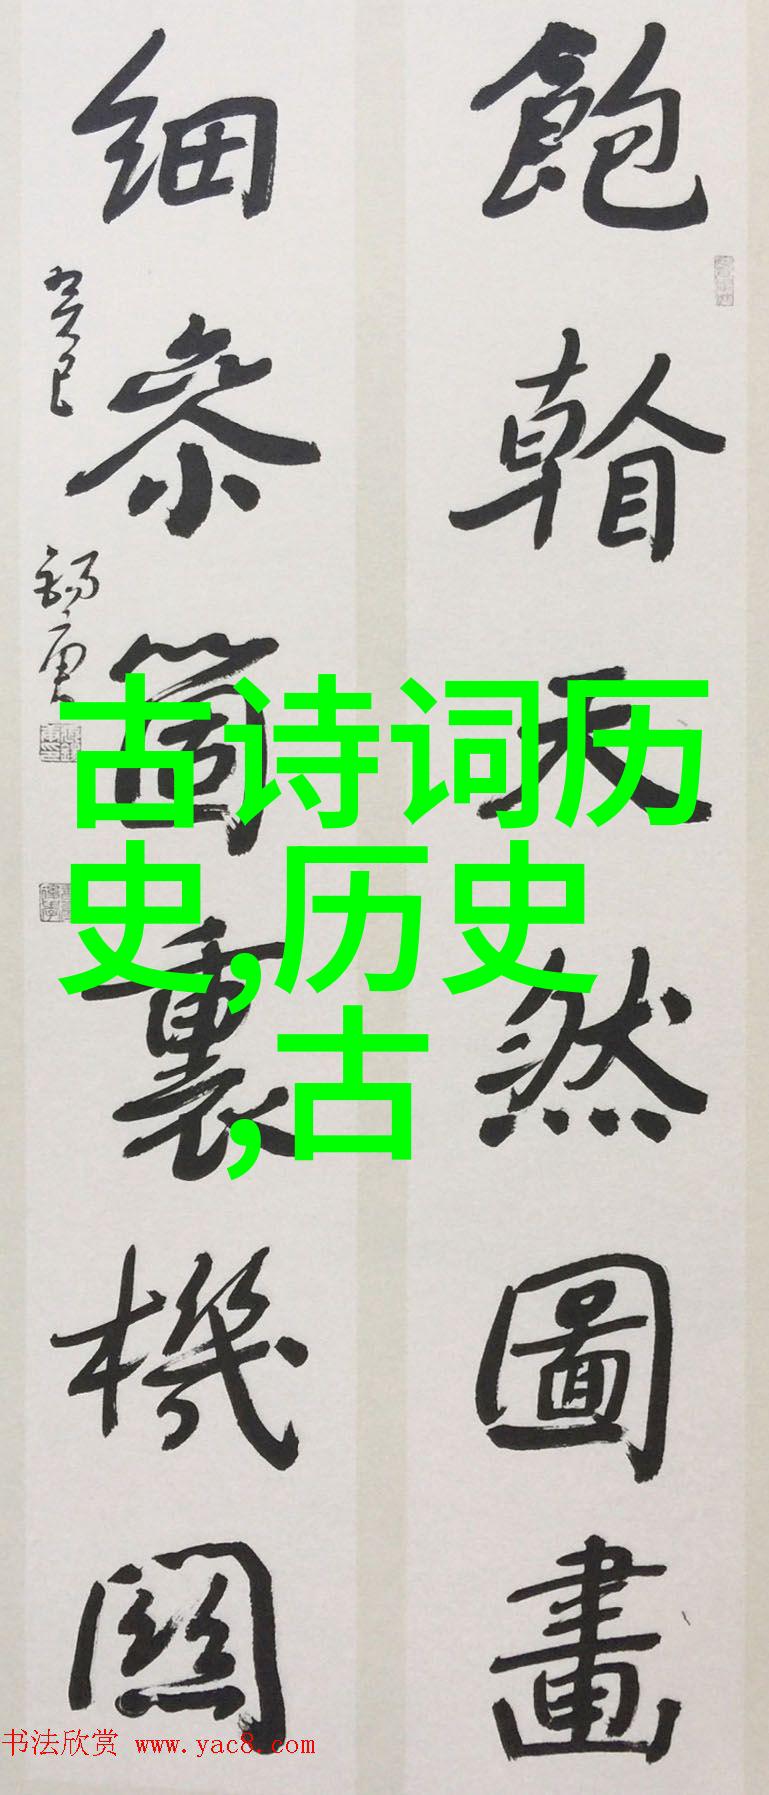 飽天然圖畫
細叅箇裏機關
癸巳
古诗词历
史,历史
,古
书法欣赏 www.yac8.com